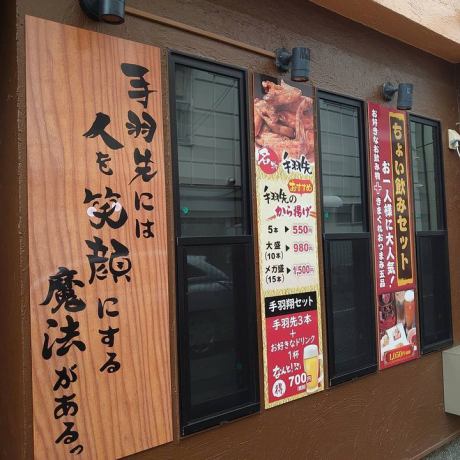 手羽先には
人を笑顔にする
魔法があるっ
名物 手羽先
おすすめ
手羽先の
から揚げ
5本 ▶ 550円
大盛
(10本) ▶ 980円
メガ盛
(15本) ▶ 1,500円
手羽翔セット
手羽先3本
+
お好きなドリンク
1杯
なんと!
700円
(税別)
ちょい飲みセット
お一人様に大人気!
お好きなお飲み物+きまぐれおつまみ五品
1,050円